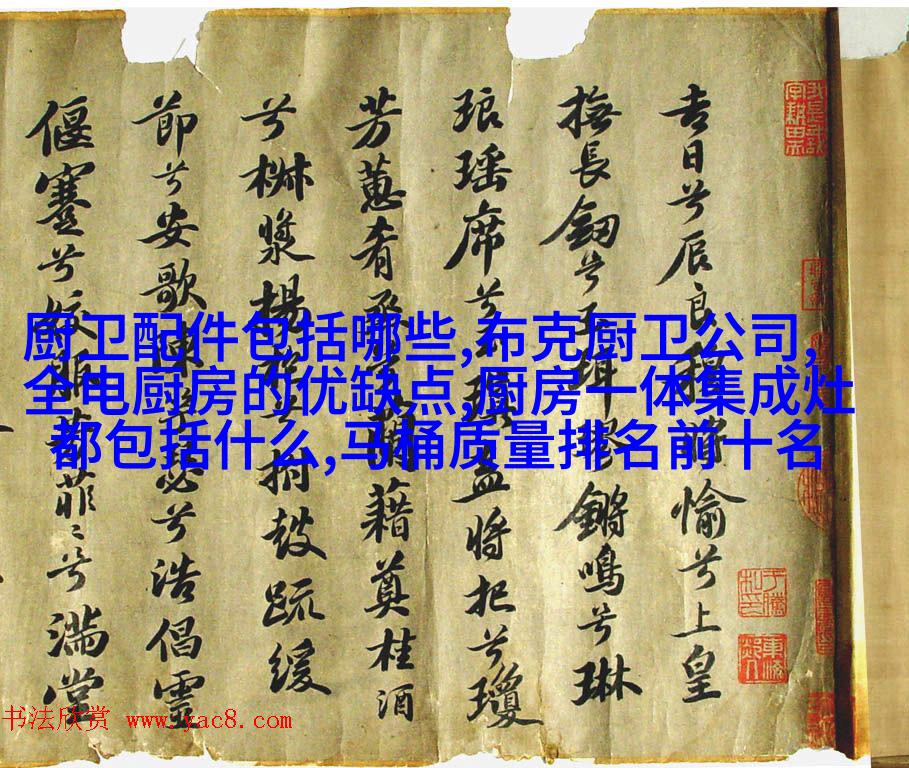 吉日兮辰良穆將愉兮上皇
撫長劒兮玉珥璆鏘鳴兮琳
琅瑶席兮玉瑱盍將把兮瓊
芳蕙肴蒸兮蘭藉奠桂酒
兮椒漿揚枹兮拊鼓疏緩
節兮安歌陳竽瑟兮浩倡靈
偃蹇兮姣服芳菲〻兮滿堂
厨卫配件包括哪些,布克厨卫公司,
全电厨房的优缺点,厨房一体集成灶
都包括什么,马桶质量排名前十名
书法欣赏 www.yac8.com